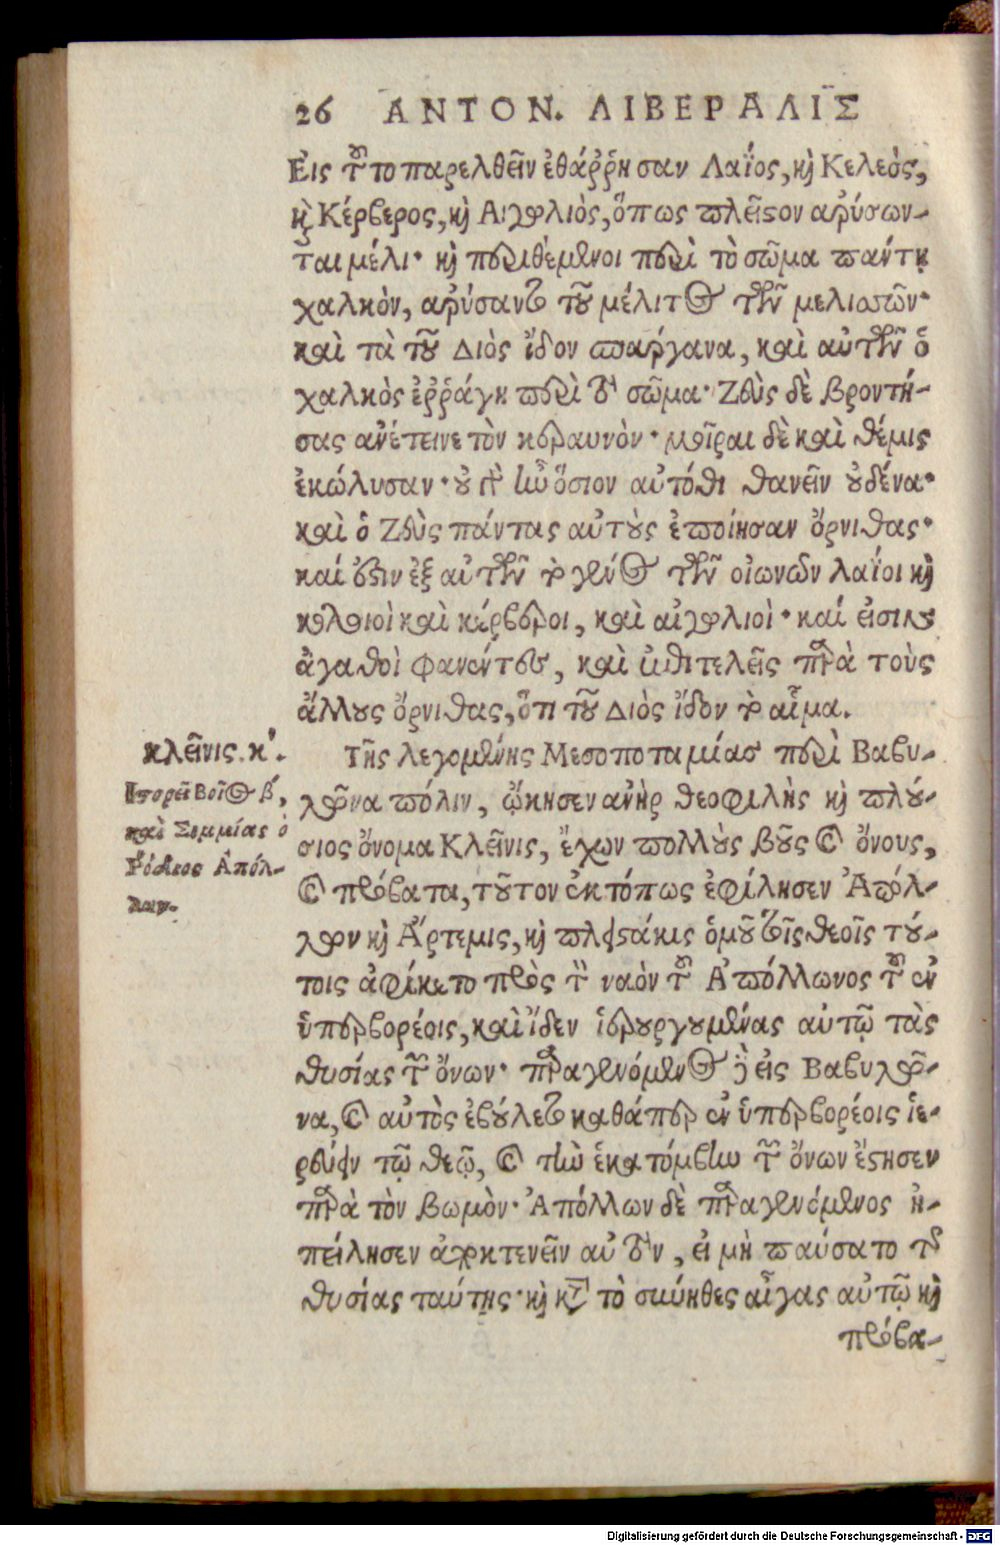 26 ΑΝΤΟΝ. ΛΙΒΕΡΑΛΙΣ
Εἰς τοῦτο παρελθεῖν ἐθάῤῥησαν Λαΐος, καὶ Κελεὸς,
καὶ Κέρβερος, καὶ Αἰγωλιὸς, ὅπως πλεῖστον ἀρύσων-
ται μέλι· καὶ περιθέμενοι περὶ τὸ σῶμα πάντη
χαλκὸν, ἀρύσαντο τοῦ μέλιτος τῶν μελισσῶν·
καὶ τὰ τοῦ Διὸς ἴδον σπάργανα, καὶ αὐτῶν ὁ
χαλκὸς ἐῤῥάγη περὶ τὸ σῶμα· Ζεὺς δὲ βροντή-
σας ἀνέτεινε τὸν κεραυνὸν· μοῖραι δὲ καὶ θέμις
ἐκώλυσαν· οὐ γὰρ ἦν ὅσιον αὐτόθι θανεῖν οὐδένα·
καὶ ὁ Ζεὺς πάντας αὐτοὺς ἐποίησαν ὄρνιθας·
καί ἐστιν ἐξ αὐτῶν τὸ γένος τῶν οἰωνῶν λαΐοι καὶ
κελεοὶ καὶ κέρβεροι, καὶ αἰγωλιοὶ· καί εἰσιν
ἀγαθοὶ φανέντες, καὶ ἐπιτελεῖς παρὰ τοὺς
ἄλλους ὄρνιθας, ὅτι τοῦ Διὸς ἴδον τὸ αἷμα.
κλεῖνις. κʹ.
Ἱστορεῖ Βοῖος βʹ,
καὶ Σιμμίας ὁ
Ῥόδιος Ἀπόλ-
λωνι.
Τῆς λεγομένης Μεσοποταμίας περὶ Βαβυ-
λῶνα πόλιν, ᾤκησεν ἀνὴρ θεοφιλὴς καὶ πλού-
σιος ὄνομα Κλεῖνις, ἔχων πολλοὺς βοῦς καὶ ὄνους,
καὶ πρόβατα, τοῦτον ἐκτόπως ἐφίλησεν Ἀπόλ-
λων καὶ Ἄρτεμις, καὶ πλειστάκις ὁμοῦ τοῖς θεοῖς τού-
τοις ἀφίκετο πρὸς τὸν ναὸν τοῦ Ἀπόλλωνος τοῦ ἐν
ὑπερβορέοις, καὶ ἴδεν ἱερουργουμένας αὐτῷ τὰς
θυσίας τῶν ὄνων· παραγενόμενος δὲ εἰς Βαβυλῶ-
να, καὶ αὐτὸς ἐβούλετο καθάπερ ἐν ὑπερβορέοις ἱε-
ρεύειν τῷ θεῷ, καὶ τὴν ἑκατόμβην τῶν ὄνων ἔστησεν
παρὰ τὸν βωμὸν· Ἀπόλλων δὲ παραγενόμενος ἠ-
πείλησεν ἀποκτενεῖν αὐτὸν, εἰ μὴ παύσαιτο τῆς
θυσίας ταύτης· καὶ κατὰ τὸ σύνηθες αἶγας αὐτῷ καὶ
πρόβα-
Digitalisierung gefördert durch die Deutsche Forschungsgemeinschaft - DFG